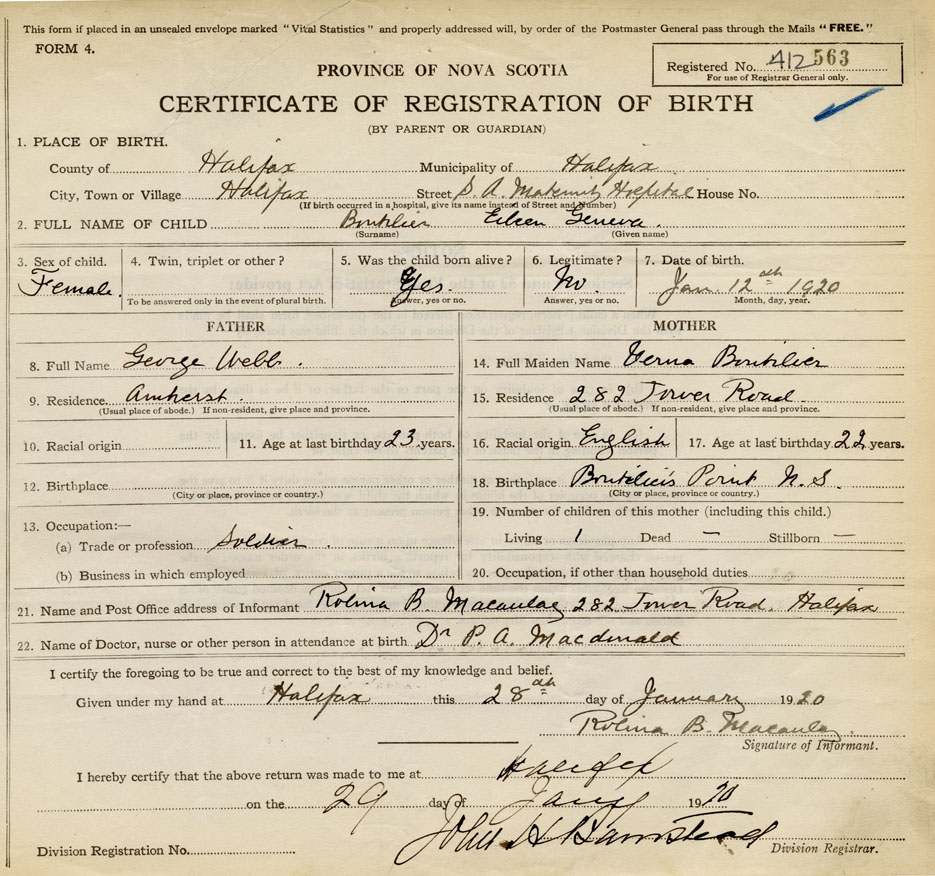 This form if placed in an unsealed envelope marked "Vital Statistics" and properly addressed will, by order of the Postmaster General pass through the Mails "FREE."
FORM 4.
Registered No. 412563
For use of Registrar General only.
PROVINCE OF NOVA SCOTIA
CERTIFICATE OF REGISTRATION OF BIRTH
(BY PARENT OR GUARDIAN)
1. PLACE OF BIRTH.
County of Halifax Municipality of Halifax
City, Town or Village Halifax Street S. A. Maternity Hospital House No.
(If birth occurred in a hospital, give its name instead of Street and Number)
2. FULL NAME OF CHILD Boutilier Eileen Geneva.
(Surname) (Given name)
3. Sex of child. 4. Twin, triplet or other? 5. Was the child born alive? 6. Legitimate? 7. Date of birth.
Female. Yes. No. Jan. 12th 1920
To be answered only in the event of plural birth. Answer, yes or no. Answer, yes or no. Month, day, year.
FATHER
8. Full Name George Webb.
9. Residence. Amherst.
(Usual place of abode.) If non-resident, give place and province.
10. Racial origin 11. Age at last birthday 23 years.
12. Birthplace
(City or place, province or country.)
13. Occupation:—
(a) Trade or profession Soldier.
(b) Business in which employed
MOTHER
14. Full Maiden Name Verna Boutilier
15. Residence 282 Tower Road.
(Usual place of abode.) If non-resident, give place and province.
16. Racial origin English 17. Age at last birthday 22 years.
18. Birthplace Boutilier's Point N. S.
(City or place, province or country.)
19. Number of children of this mother (including this child.)
Living 1 Dead — Stillborn —
20. Occupation, if other than household duties
21. Name and Post Office address of Informant Rolina B. Macaulay 282 Tower Road. Halifax
22. Name of Doctor, nurse or other person in attendance at birth Dr P. A. Macdonald
I certify the foregoing to be true and correct to the best of my knowledge and belief.
Given under my hand at Halifax this 28th day of January 1920
Rolina B. Macaulay
Signature of Informant.
I hereby certify that the above return was made to me at Halifax
on the 29 day of Jany 1920
John H Barnstead
Division Registration No. Division Registrar.